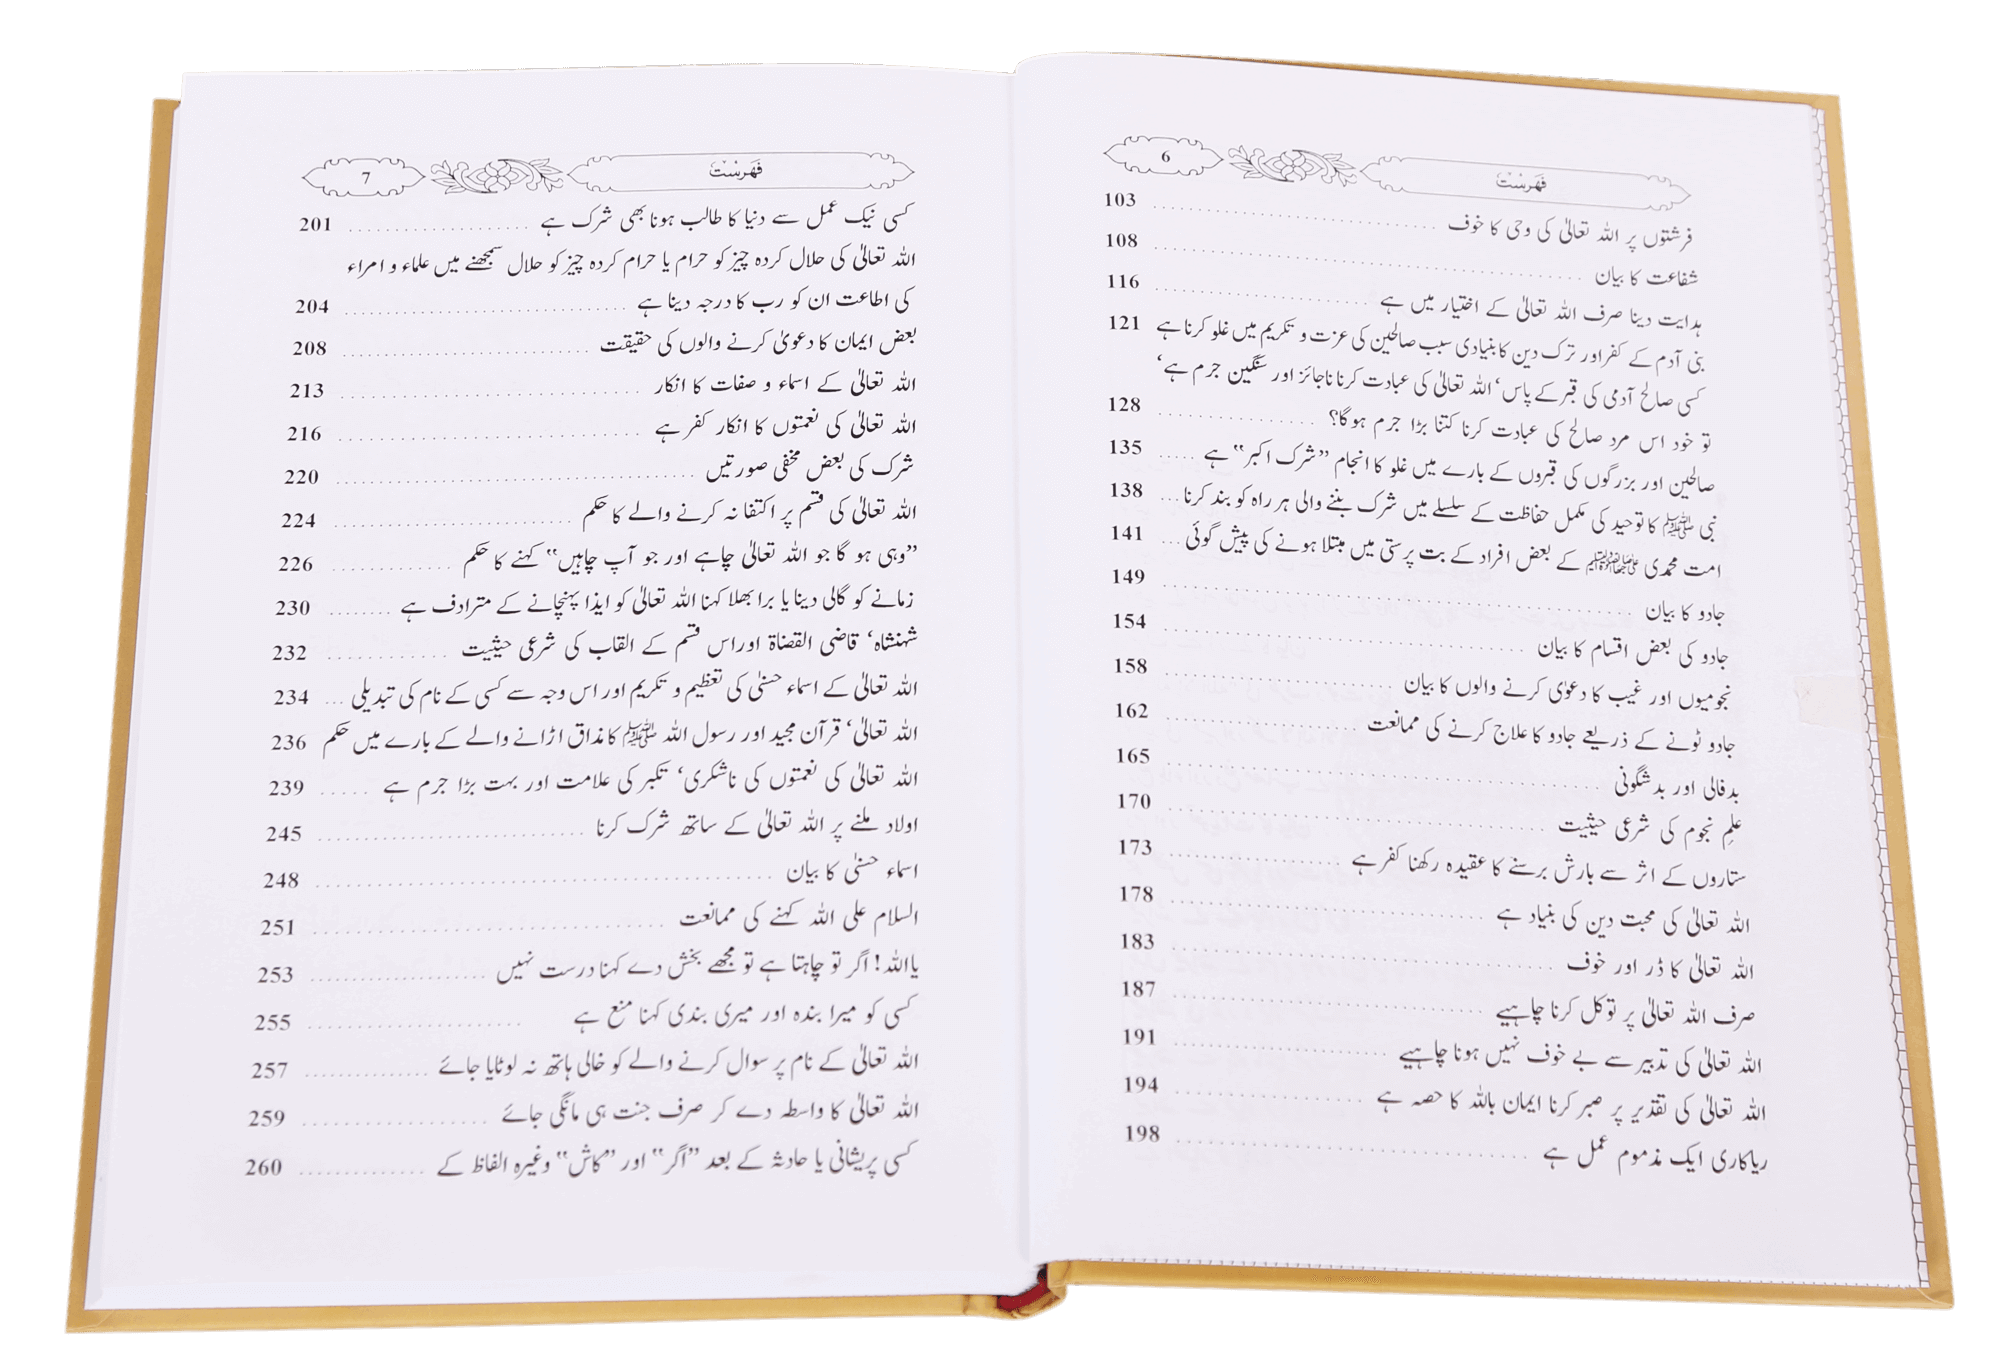 6
فہرست
فرشتوں پر اللہ تعالیٰ کی وحی کا خوف ........ 103
شفاعت کا بیان ........ 108
ہدایت دینا صرف اللہ تعالیٰ کے اختیار میں ہے ........ 116
بنی آدم کے کفر اور ترک دین کا بنیادی سبب صالحین کی عزت و تکریم میں غلو کرنا ہے 121
کسی صالح آدمی کی قبر کے پاس‘ اللہ تعالیٰ کی عبادت کرنا ناجائز اور سنگین جرم ہے‘
تو خود اس مرد صالح کی عبادت کرنا کتنا بڑا جرم ہوگا؟ ........ 128
صالحین اور بزرگوں کی قبروں کے بارے میں غلو کا انجام ”شرک اکبر“ ہے ..... 135
نبی ﷺ کا توحید کی مکمل حفاظت کے سلسلے میں شرک بننے والی ہر راہ کو بند کرنا ... 138
امت محمدی ﷺ کے بعض افراد کے بت پرستی میں مبتلا ہونے کی پیش گوئی ... 141
جادو کا بیان ........ 149
جادو کی بعض اقسام کا بیان ........ 154
نجومیوں اور غیب کا دعویٰ کرنے والوں کا بیان ........ 158
جادو ٹونے کے ذریعے جادو کا علاج کرنے کی ممانعت ........ 162
بدفالی اور بدشگونی ........ 165
علمِ نجوم کی شرعی حیثیت ........ 170
ستاروں کے اثر سے بارش برسنے کا عقیدہ رکھنا کفر ہے ........ 173
اللہ تعالیٰ کی محبت دین کی بنیاد ہے ........ 178
اللہ تعالیٰ کا ڈر اور خوف ........ 183
صرف اللہ تعالیٰ پر توکل کرنا چاہیے ........ 187
اللہ تعالیٰ کی تدبیر سے بے خوف نہیں ہونا چاہیے ........ 191
اللہ تعالیٰ کی تقدیر پر صبر کرنا ایمان باللہ کا حصہ ہے ........ 194
ریاکاری ایک مذموم عمل ہے ........ 198
7
فہرست
کسی نیک عمل سے دنیا کا طالب ہونا بھی شرک ہے ........ 201
اللہ تعالیٰ کی حلال کردہ چیز کو حرام یا حرام کردہ چیز کو حلال سمجھنے میں علماء و امراء
کی اطاعت ان کو رب کا درجہ دینا ہے ........ 204
بعض ایمان کا دعویٰ کرنے والوں کی حقیقت ........ 208
اللہ تعالیٰ کے اسماء و صفات کا انکار ........ 213
اللہ تعالیٰ کی نعمتوں کا انکار کفر ہے ........ 216
شرک کی بعض مخفی صورتیں ........ 220
اللہ تعالیٰ کی قسم پر اکتفا نہ کرنے والے کا حکم ........ 224
”وہی ہو گا جو اللہ تعالیٰ چاہے اور جو آپ چاہیں“ کہنے کا حکم ........ 226
زمانے کو گالی دینا یا برا بھلا کہنا اللہ تعالیٰ کو ایذا پہنچانے کے مترادف ہے ........ 230
شہنشاہ‘ قاضی القضاۃ اور اس قسم کے القاب کی شرعی حیثیت ........ 232
اللہ تعالیٰ کے اسماء حسنیٰ کی تعظیم و تکریم اور اس وجہ سے کسی کے نام کی تبدیلی ... 234
اللہ تعالیٰ‘ قرآن مجید اور رسول اللہ ﷺ کا مذاق اڑانے والے کے بارے میں حکم 236
اللہ تعالیٰ کی نعمتوں کی ناشکری‘ تکبر کی علامت اور بہت بڑا جرم ہے ..... 239
اولاد ملنے پر اللہ تعالیٰ کے ساتھ شرک کرنا ........ 245
اسماء حسنیٰ کا بیان ........ 248
السلام علی اللہ کہنے کی ممانعت ........ 251
یا اللہ! اگر تو چاہتا ہے تو مجھے بخش دے کہنا درست نہیں ........ 253
کسی کو میرا بندہ اور میری بندی کہنا منع ہے ........ 255
اللہ تعالیٰ کے نام پر سوال کرنے والے کو خالی ہاتھ نہ لوٹایا جائے ........ 257
اللہ تعالیٰ کا واسطہ دے کر صرف جنت ہی مانگی جائے ........ 259
کسی پریشانی یا حادثہ کے بعد ”اگر“ اور ”کاش“ وغیرہ الفاظ کے ........ 260